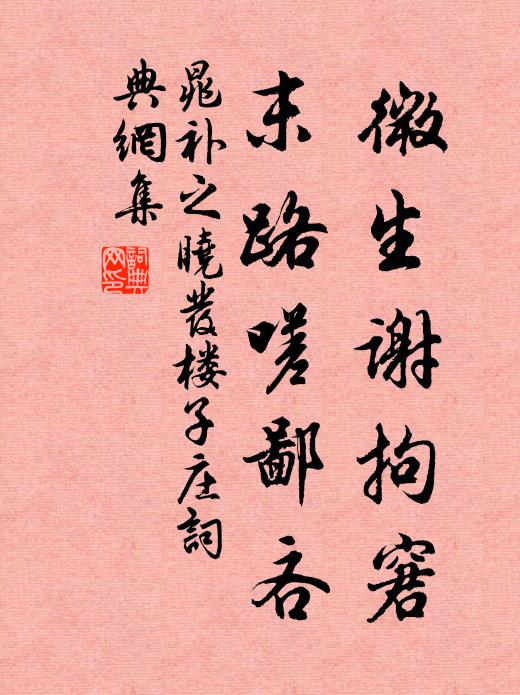 微生谢拘窘
末路嗟鄙吝
晁补之曉发楼子庄詞
典網集
詞典
网印